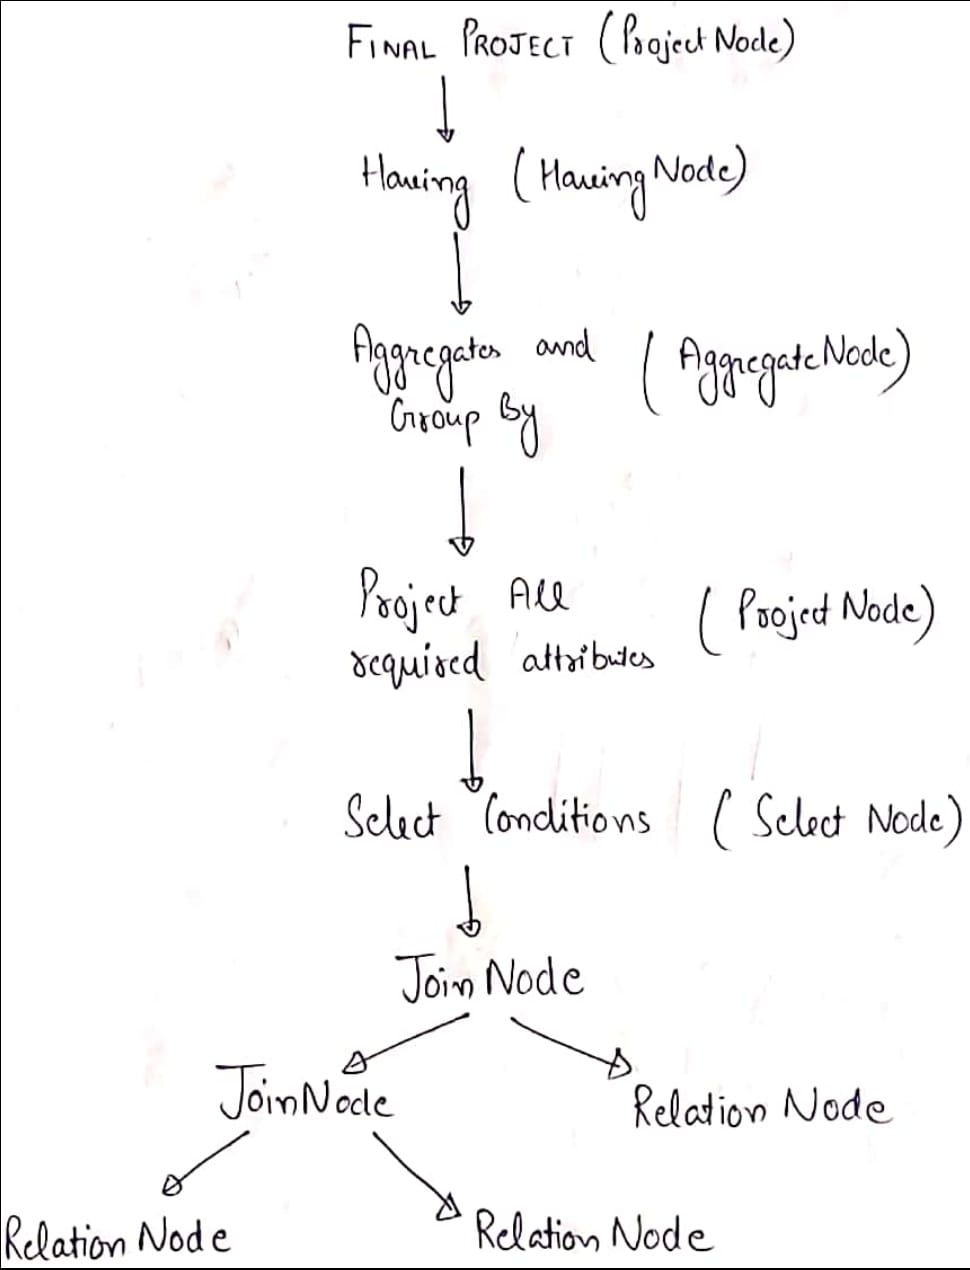 FINAL PROJECT (Project Node)
Having (Having Node)
Aggregates and (AggregateNode)
Group By
Project All (Project Node)
required attributes
Select Conditions (Select Node)
Join Node
JoinNode
Relation Node
Relation Node
Relation Node